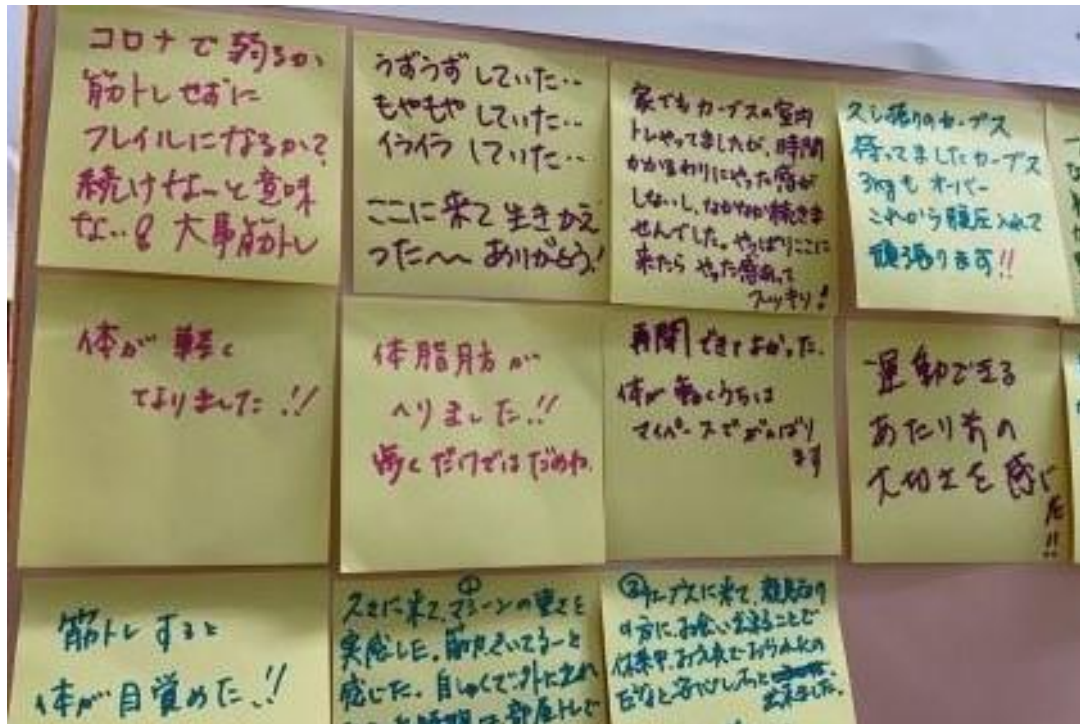 コロナで弱るか、
筋トレせずに
フレイルになるか?
続けなーと意味
ない!! 大事筋トレ
うずうずしていた…
もやもやしていた…
イライラしていた…
ここに来て生きかえ
った〜〜ありがとう!
家でもカーブスの室内
トレやってましたが、時間
かかるわりにやった感が
しないし、なかなか続きま
せんでした。やっぱりここに
来たらやった感あって
スッキリ!
久し振りのカーブス
待ってましたカーブス
3kgもオーバー
これから腹圧入れて
頑張ります!!
体が軽く
なりました!!
体脂肪が
へりました!!
歩くだけではだめね。
再開できてよかった。
体が動くうちは
マイペースでがんばり
ます
運動できる
あたり前の
大切さを感じ
た!!
筋トレすると
体が目覚めた!!
①
久々に来て、マシーンの重さを
実感した。
感じた。自しゅくで外に
部屋トレで
②カーブスに来て、顔見知り
の方にお会い出来ることで
休業中、
安心
出来ました。